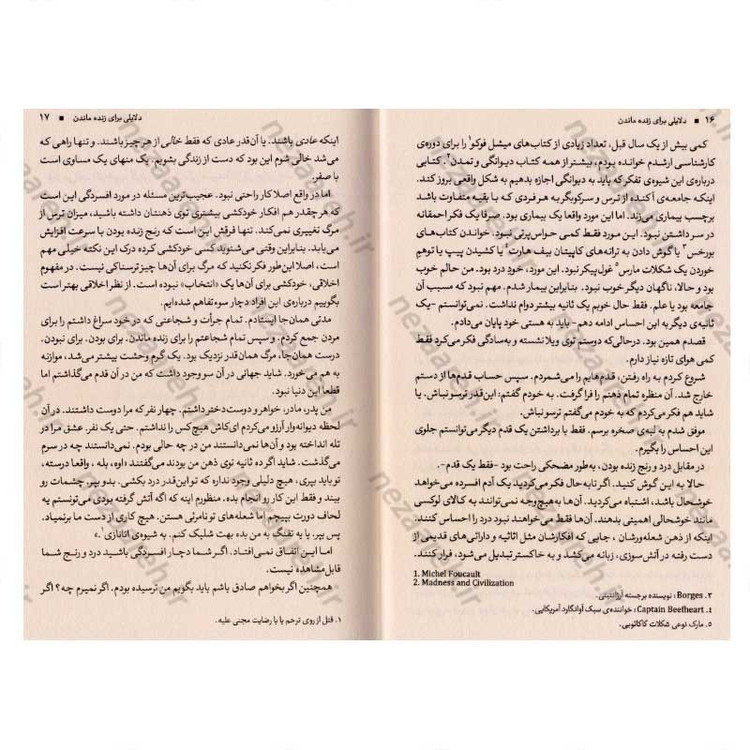 ۱۶ ■ دلایلی برای زنده ماندن
کمی بیش از یک سال قبل، تعداد زیادی از کتاب‌های میشل فوکو۱ را برای دوره‌ی
کارشناسی ارشدم خوانده بودم، بیشتر از همه کتاب دیوانگی و تمدن۲. کتابی
درباره‌ی این شیوه‌ی تفکر که باید به دیوانگی اجازه بدهیم به شکل واقعی بروز کند.
اینکه جامعه‌ی آکنده از ترس و سرکوبگر به هر فردی که با بقیه متفاوت باشد
برچسب بیماری می‌زند. اما این مورد واقعا یک بیماری بود. صرفا یک فکر احمقانه
در سر داشتن نبود. این مورد فقط کمی حواس‌پرتی نبود. خواندن کتاب‌های
بورخس۳ یا گوش دادن به ترانه‌های کاپیتان بیف هارت۴ یا کشیدن پیپ یا توهمِ
خوردن یک شکلات مارس۵ غول‌پیکر نبود. این مورد، خودِ درد بود. من حالم خوب
بود و حالا، ناگهان دیگر خوب نبودم. بنابراین بیمار شدم. مهم نبود که مسبب آن
جامعه بود یا علم. فقط حال خوبم یک ثانیه بیشتر دوام نداشت. نمی‌توانستم -یک
ثانیه‌ی دیگر به این احساس ادامه دهم- باید به هستی خود پایان می‌دادم.
قصدم همین بود. درحالی‌که دوستم توی ویلا نشسته و به‌سادگی فکر می‌کرد فقط
کمی هوای تازه نیاز دارم.
شروع کردم به راه رفتن، قدم‌هایم را می‌شمردم. سپس حساب قدم‌ها از دستم
خارج شد. آن منظره تمام ذهنم را فرا گرفت. به خودم گفتم: این‌قدر ترسو نباش. یا
شاید هم فکر می‌کردم که به خودم می‌گفتم ترسو نباش.
موفق شدم به لبه‌ی صخره برسم. فقط با برداشتن یک قدم دیگر می‌توانستم جلوی
این احساس را بگیرم.
در مقابل درد و رنج زنده بودن، به‌طور مضحکی راحت بود -فقط یک قدم-.
حالا به این گوش کنید. اگر تابه‌حال فکر می‌کردید یک آدم افسرده می‌خواهد
خوشحال باشد، اشتباه می‌کردید. آن‌ها به‌هیچ وجه نمی‌توانند به کالای لوکسی
مانند خوشحالی اهمیتی بدهند. آن‌ها فقط می‌خواهند نبود درد را احساس کنند.
اینکه از ذهن شعله‌ورشان ، جایی که افکارشان مثل اثاثیه و دارائی‌های قدیمی از
دست رفته در آتش‌سوزی، زبانه می‌کشد و به خاکستر تبدیل می‌شود، فرار کنند.
1. Michel Foucault
2. Madness and Civilization
۳. Borges : نویسنده برجسته آرژانتینی.
٤. Captain Beefheart: خواننده‌ی سبک آوانگارد آمریکایی.
۵. مارک نوعی شکلات کاکائویی.
دلایلی برای زنده ماندن ■ ۱۷
اینکه عادی باشند. یا آن‌قدر عادی که فقط خالی از هر چیز باشند. و تنها راهی که
می‌شد خالی شوم این بود که دست از زندگی بشویم. یک منهای یک مساوی است
با صفر.
اما در واقع اصلا کار راحتی نبود. عجیب‌ترین مسئله در مورد افسردگی این است
که هرچقدر هم افکار خودکشی بیشتری توی ذهنتان داشته باشید، میزان ترس از
مرگ تغییری نمی‌کند. تنها فرقش این است که رنج زنده بودن با سرعت افزایش
می‌یابد. بنابراین وقتی می‌شنوید کسی خودکشی کرده درک این نکته خیلی مهم
است، اصلا این‌طور فکر نکنید که مرگ برای آن‌ها چیز ترسناکی نیست. در مفهوم
اخلاقی، خودکشی برای آن‌ها یک «انتخاب» نبوده است. از نظر اخلاقی بهتر است
بگوییم درباره‌ی این افراد دچار سوءتفاهم شده‌ایم.
مدتی همان‌جا ایستادم. تمام جرأت و شجاعتی که در خود سراغ داشتم را برای
مردن جمع کردم. و سپس تمام شجاعتم را برای زنده ماندن. برای بودن. برای نبودن.
درست همان‌جا، مرگ همان‌قدر نزدیک بود. یک گرم وحشت بیشتر می‌شد، موازنه
به هم می‌خورد. شاید جهانی در آن سو وجود داشت که من در آن قدم می‌گذاشتم اما
قطعا این دنیا نبود.
من پدر، مادر، خواهر و دوست‌دختر داشتم. چهار نفر که مرا دوست داشتند. در آن
لحظه دیوانه‌وار آرزو می‌کردم ای‌کاش هیچ‌کس را نداشتم. حتی یک نفر. عشق مرا در
تله انداخته بود و آن‌ها نمی‌دانستند من در چه حالی بودم. نمی‌دانستند چه در سرم
می‌گذشت. شاید اگر ده ثانیه توی ذهن من بودند می‌گفتند؛ «اوه، بله ، واقعا درسته،
تو باید بپری، هیچ دلیلی وجود نداره که تو این‌قدر درد بکشی. بدو بپر. چشمات رو
ببند و فقط این کار رو انجام بده. منظورم اینه که اگه آتش گرفته بودی می‌تونستم یه
لحاف دورت بپیچم اما شعله‌های تو نامرئی هستن. هیچ کاری از دست ما برنمیاد.
پس بپر. یا یه تفنگ به من بده بهت شلیک کنم. به شیوه‌ی اتانازی۱.»
اما این اتفاق نمی‌افتاد. اگر شما دچار افسردگی باشید درد و رنج شما
قابل مشاهده نیست.
همچنین اگر بخواهم صادق باشم باید بگویم من ترسیده بودم. اگر نمیرم چه؟ اگر
۱. قتل از روی ترحم یا با رضایت مجنی علیه.
nezaareh.ir